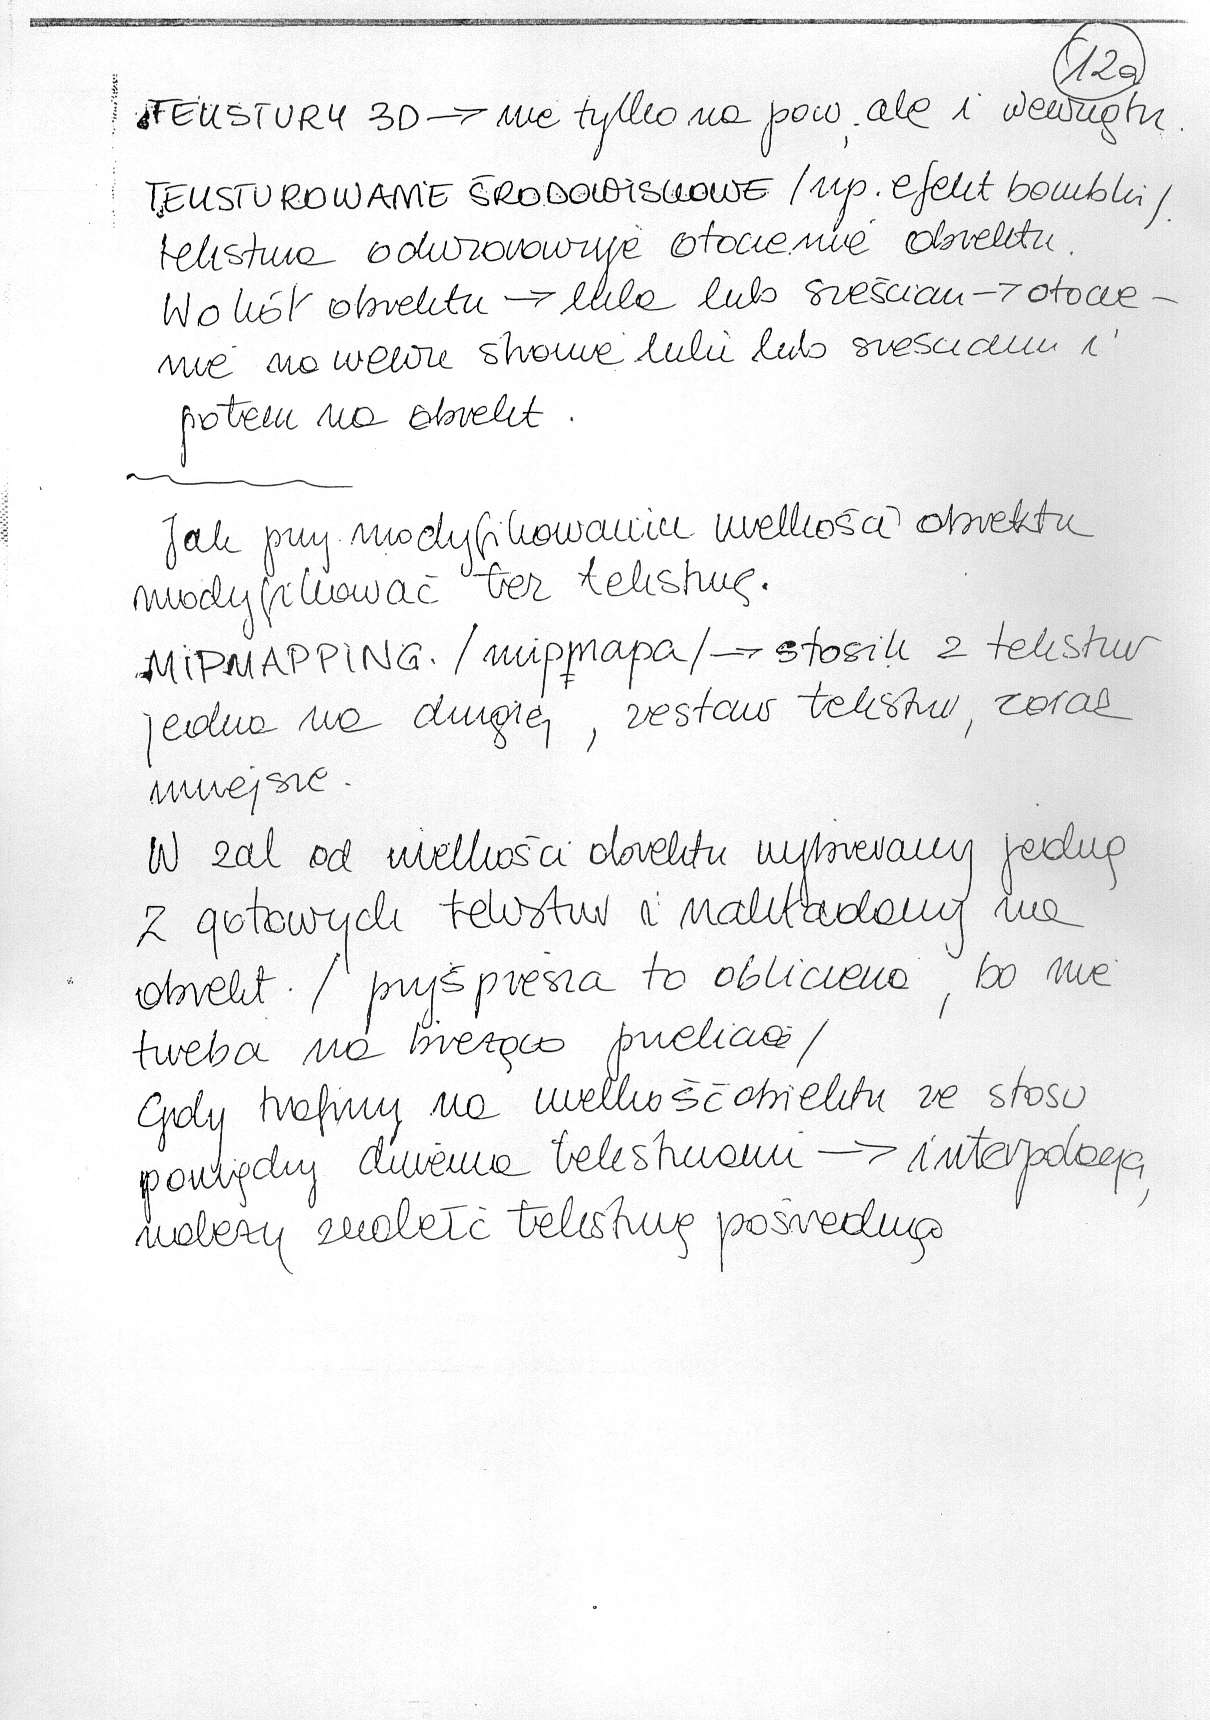 12a
TEKSTURY 3D → nie tylko na pow. ale i wewnątrz.
TEKSTUROWANIE ŚRODOWISKOWE /np. efekt bombki/.
tekstura odwzorowuje otoczenie obiektu.
Wokół obiektu → kula lub sześcian → otocze-
nie na wewn stronie kuli lub sześcianu i
potem na obiekt.
Jak przy modyfikowaniu wielkości obiektu
modyfikować też teksturę.
MIPMAPPING. /mipmapa/ → stosik z tekstur
jedna na drugiej, zestaw tekstur, coraz
mniejsze.
W zal od wielkości obiektu wybieramy jedną
z gotowych tekstur i nakładamy na
obiekt. / przyśpiesza to obliczenia, bo nie
trzeba na bieżąco przeliczać/
Gdy trafimy na wielkość obiektu ze stosu
pomiędzy dwiema teksturami → interpolacja,
należy znaleźć teksturę pośrednią